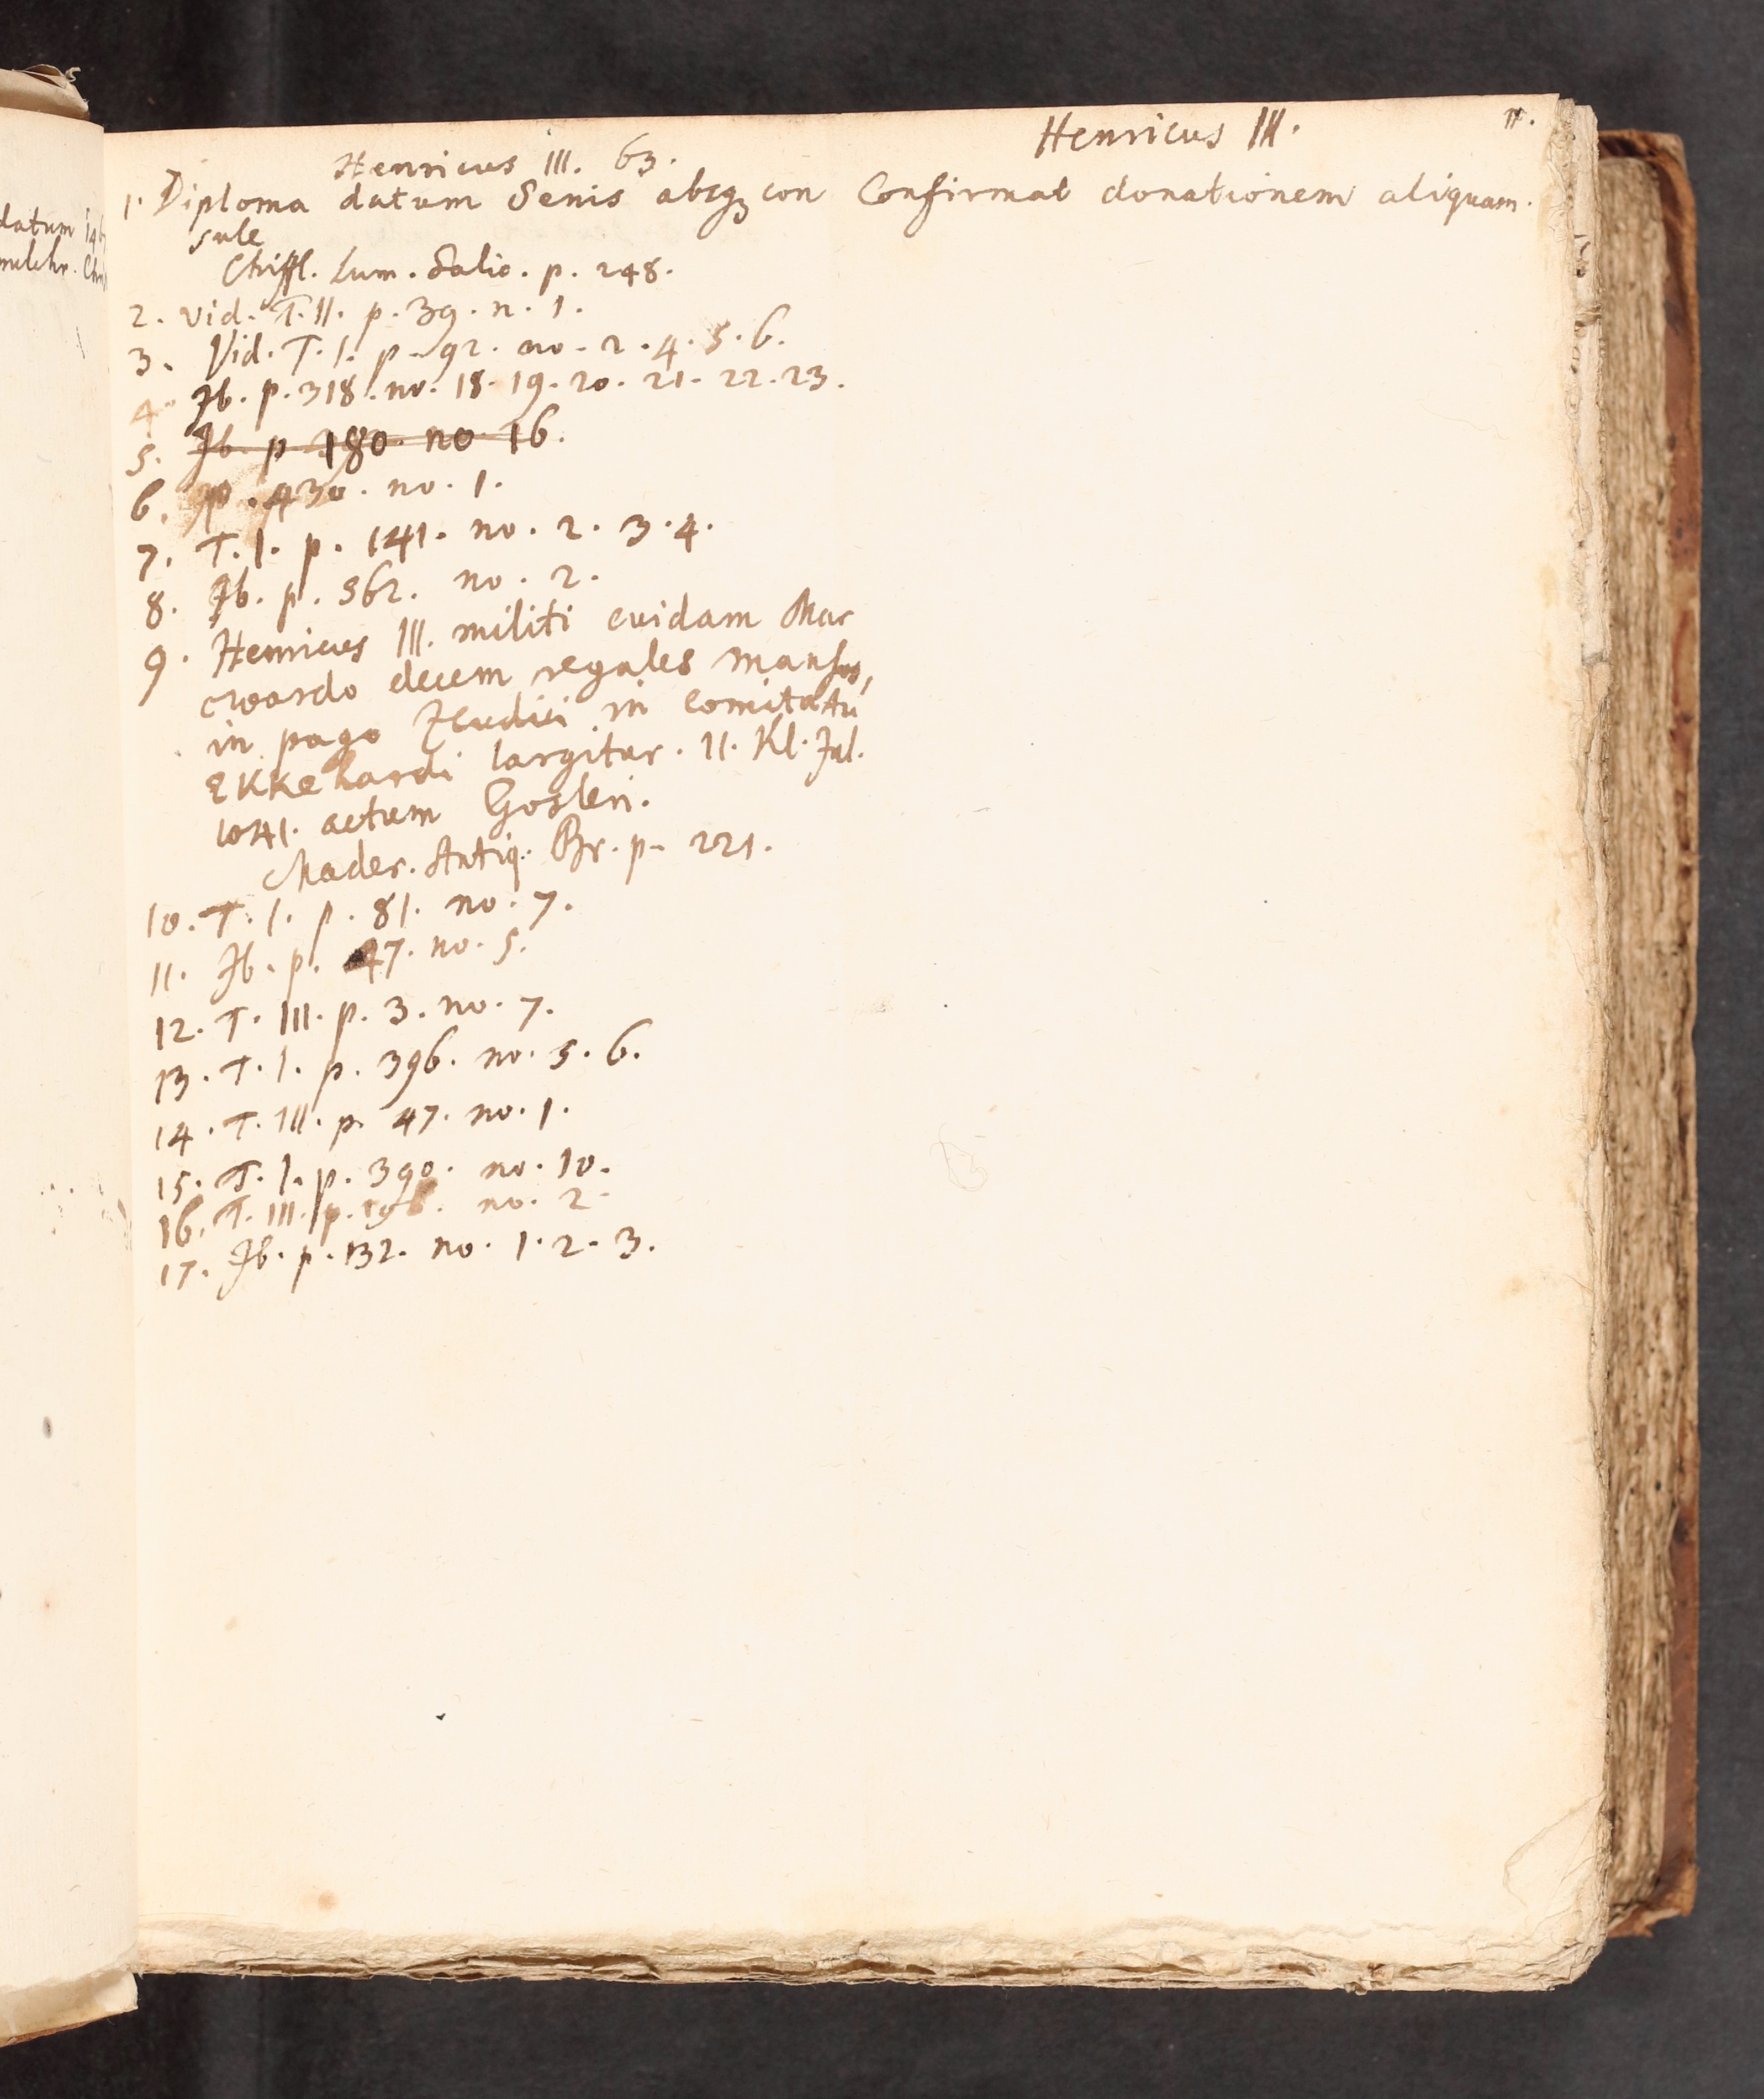 datum 146
Henricus III. 63.
1. Diploma datum Senis absq3 con
sule
Chiffl. Lum. Salic. p. 248.
2. vid. T. II. p. 39. n. 1.
3. Vid. T. I. p. 92. no. 2. 4. 5. 6.
4. Ib. p. 318. no. 18. 19. 20. 21. 22. 23.
5. Ib. p. 180. no. 16.
6. p. 430. no. 1.
7. T. I. p. 141. no. 2. 3. 4.
8. Ib. p. 562. no. 2.
9. Henricus III. militi cuidam Mar
cwardo decem regales mansos,
in pago in comitatu
Ekkehardi largitur. 11. Kl. Jul.
1041. actum Gosleri.
Mader. Antiq. Br. p. 221.
10. T. I. p. 81. no. 7.
11. Ib. p. 47. no. 5.
12. T. III. p. 3. no. 7.
13. T. I. p. 396. no. 5. 6.
14. T. III. p. 47. no. 1.
15. T. I. p. 390. no. 10.
16. T. III. p. 196. no. 2.
17. Ib. p. 132. no. 1. 2. 3.
Henricus III. 11.
Confirmat donationem aliquam.